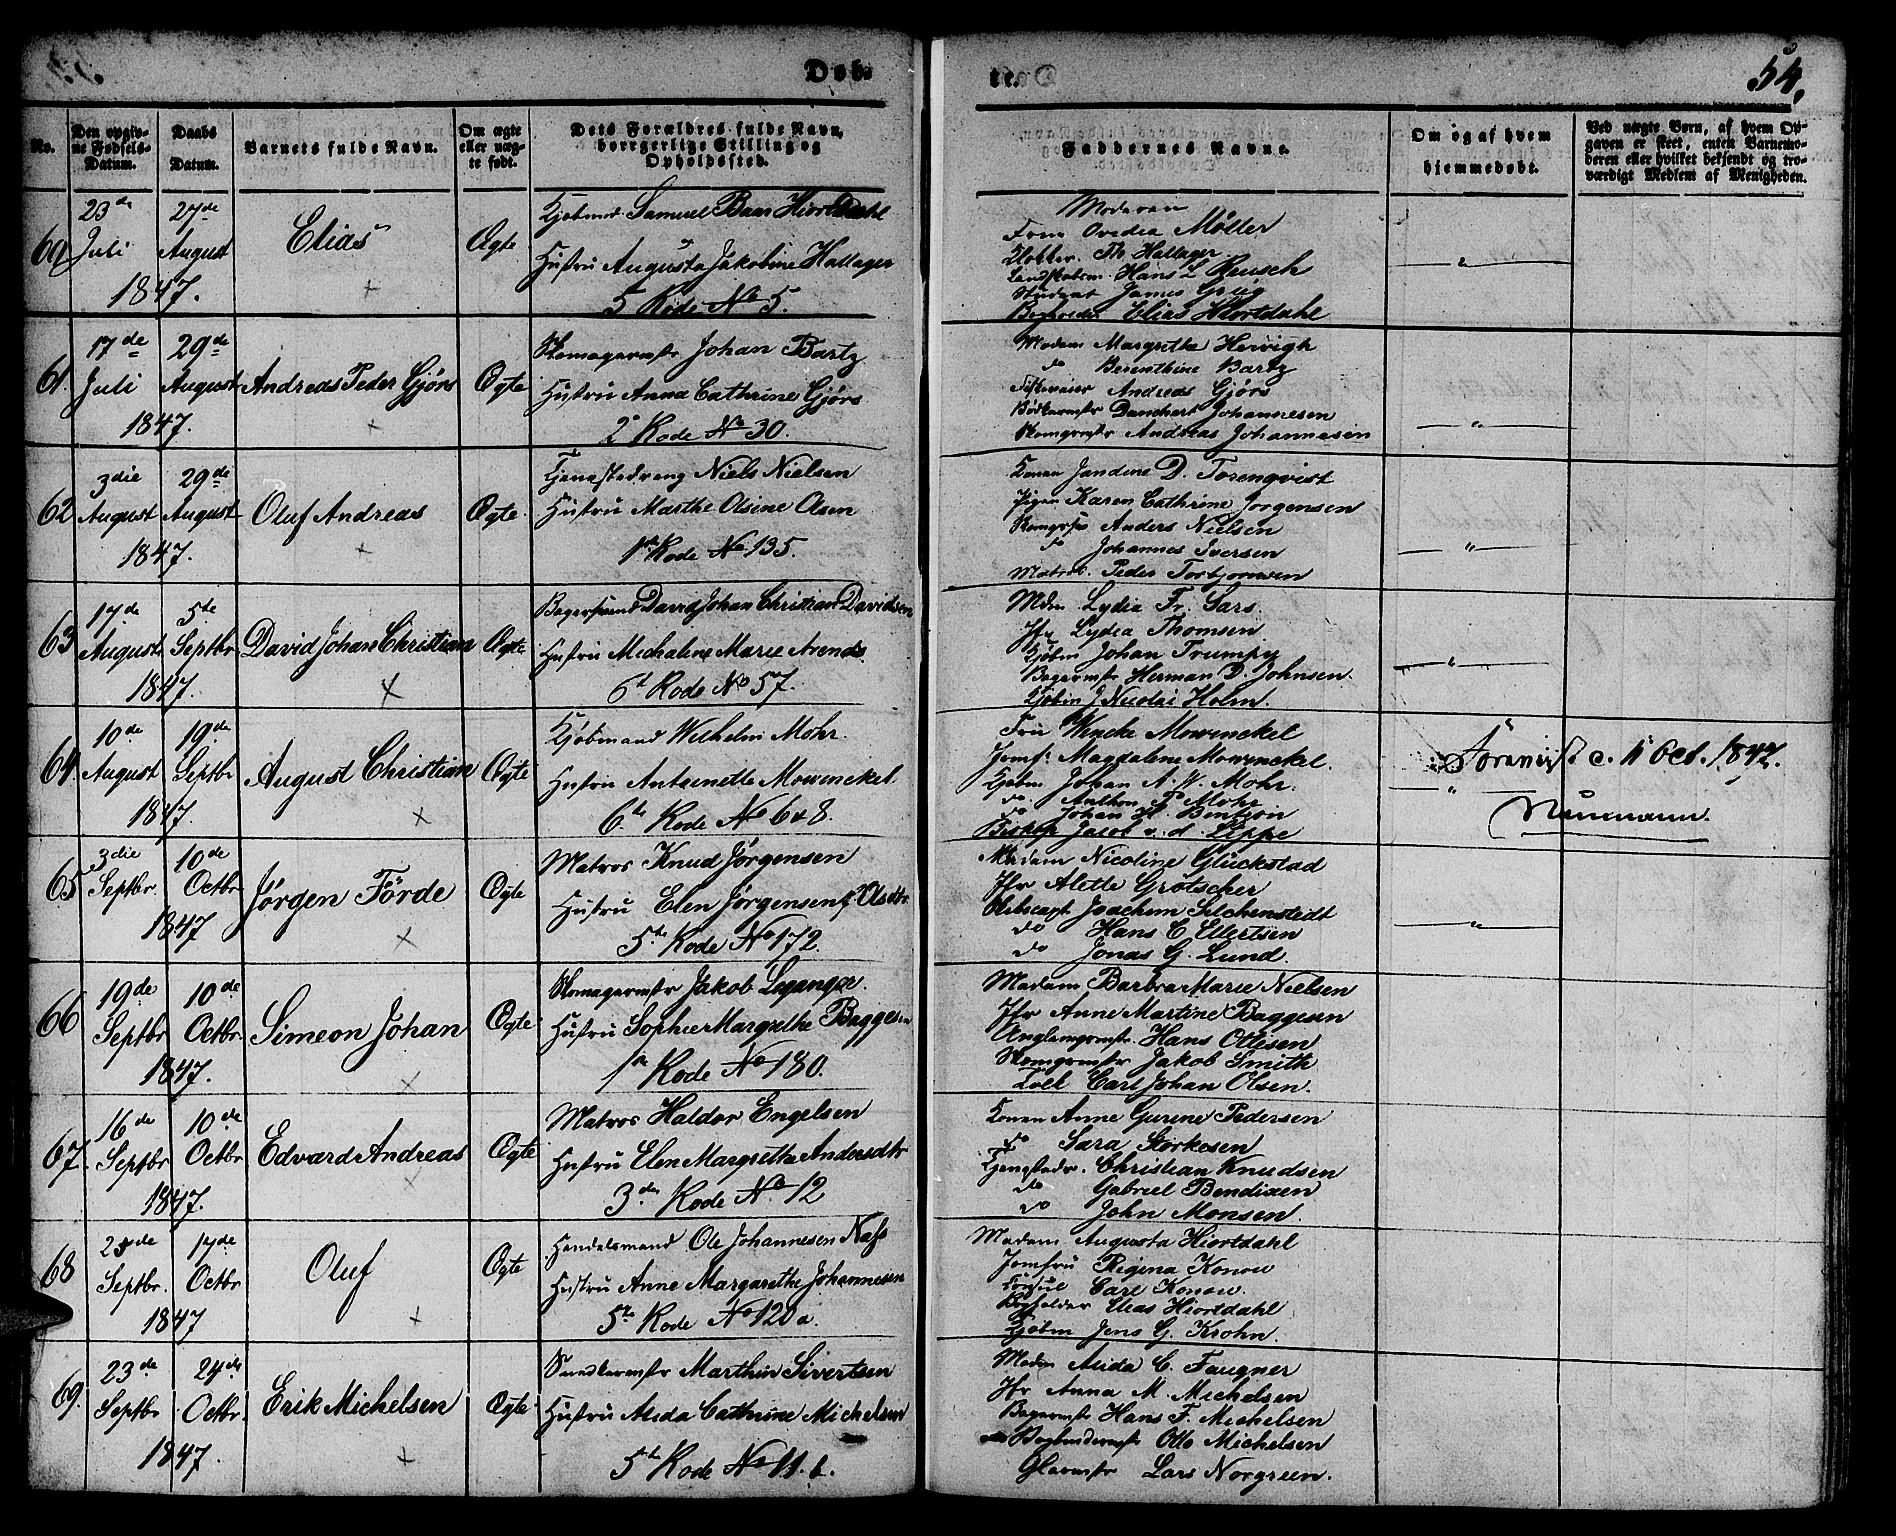 Døb-
te.
54.
No.
Den opgiv-
ne Fødsels-
Datum.
Daabs
Datum.
Barnets fulde Navn.
Om ægte
eller uæg-
te født.
Dets Forældres fulde Navn,
borgerlige Stilling og
Opholdssted.
Faddernes Navne.
Om og af hvem
hjemmedøbt.
Ved uægte Børn, af hvem Op-
gaven er skeet, enten Barnemo-
deren eller hvilket bekjendt og tro-
værdigt Medlem af Menigheden.
60
23de Juli
27de August
1847.
Elias
Ægte
Kjøbmd Samuel Baar Hiortdahl
Hustru Augusta Jakobine Hallager
5 Rode No 5.
Madamen
Frue Ovedia Møller
Klokker Th Hallager
Hans L Reusch
Student James Grieg
Elias Hiortdahl
61
17de Juli
29de August
1847.
Andreas Peder Gjørs
Ægte
Skomagermstr Johan Bartz
Hustru Anna Cathrine Gjørs
2 Rode No 30.
Madam Margretha Hervigh
do Berenthine Bartz
Andreas Gjørs
Bødkermstr Danchert Johannesen
Skomgrmstr Andreas Johannesen
62
3die August
29de August
1847.
Oluf Andreas
Ægte.
Niels Nielsen
Hustru Marthe Olsine Olsen
1ste Rode No 135.
Konen Jandine D. Torenqvist
Pigen Karen Cathrine Jørgensen
Anders Nielsen
do Johannes Iversen
Matros. Peder Torbjørnsen
63
17de August
5te Septbr
1847.
David Johan Christian
Ægte
David Johan Christian Davidsen
Hustru Michaline Marie Arends.
6t Rode No 57.
Mdm Lydia Fr. Sars.
Jfr Lydia Thomsen
Kjøbm Johan Trumpy
Bagermstr Herman D. Johnsen.
Kjøbm J Nicolai Holm.
64
10de August
19de Septbr
1847.
August Christian
Ægte
Kjøbmand Wilhelm Mohr.
Hustru Antoinette Mowinckel
6te Rode No 6&8.
Fru Wencke Mowinckel
Jomf: Magdalene Mowinckel.
Kjøbm Johan A. W. Mohr.
do. Anthon P Mohr
do Johan H. Bentzon
Biskop Jacob v. d. Lippe
11 Oct. 1847.
Neumann.
65
3die Septbr.
10de Octbr.
1847
Jørgen Förde
Ægte
Matros Knud Jørgensen
Hustru Elen Jørgensen f. Olsdtr
5te Rode No 172.
Madam Nicoline Glückstad
Jfr Alette Grötscher
Joachim Silchenstedt
do Hans C Ellertsen
do Jonas G. Lund.
66
19de Septbr
10de Octbr.
1847.
Simeon Johan
Ægte
Skomagermstr Jakob Leganger.
Hustru Sophie Margrethe Baggesen
1ste Rode No 180.
Madam Barbra Marie Nielsen
Jfr Anne Martine Baggesen
Hans Ottesen
Skomgrmstr Jakob Smith
Carl Johan Olsen.
67
16de Septbr.
10de Octbr
1847.
Edvard Andreas
Ægte
Matros Haldor Engelsen
Hustru Elen Margretha Andersdtr
3de Rode No 12
Konen Anne Gurine Pedersen
do Sara Størkesen
Christian Knudsen
do Gabriel Bendixen
do John Monsen.
68
25de Septbr.
17de Octbr.
1847
Oluf
Ægte
Handelsmand Ole Johannesen Næss
Hustru Anne Margarethe Johannesen
5te Rode No 120a.
Madam Augusta Hiortdahl
Jomfru Regina Konow
Consul Carl Konow.
Bogholder Elias Hiortdahl
Kjøbm Jens G. Krohn.
69.
23de Septbr
24de Octbr.
1847.
Erik Michelsen
Ægte
Snedkermstr Marthin Sivertsen
Hustru Alida Cathrine Michelsen
5te Rode No 11. b.
Madm Alida C. Faugner
Jfr Anna M. Michelsen
Bagermstr Hans F. Michelsen
Bogbindermstr Otto Michelsen
Glarmstr Lars Norgreen.